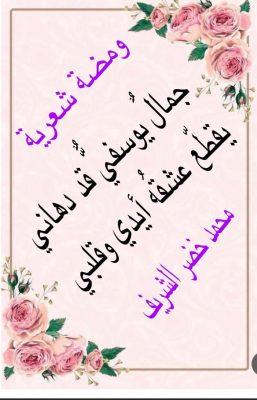 ومضة شعرية
جمال يُوسفي قَّد دهاني
يقطّع عشقهُ أيدي وقلبي
محمد خضر الشريف